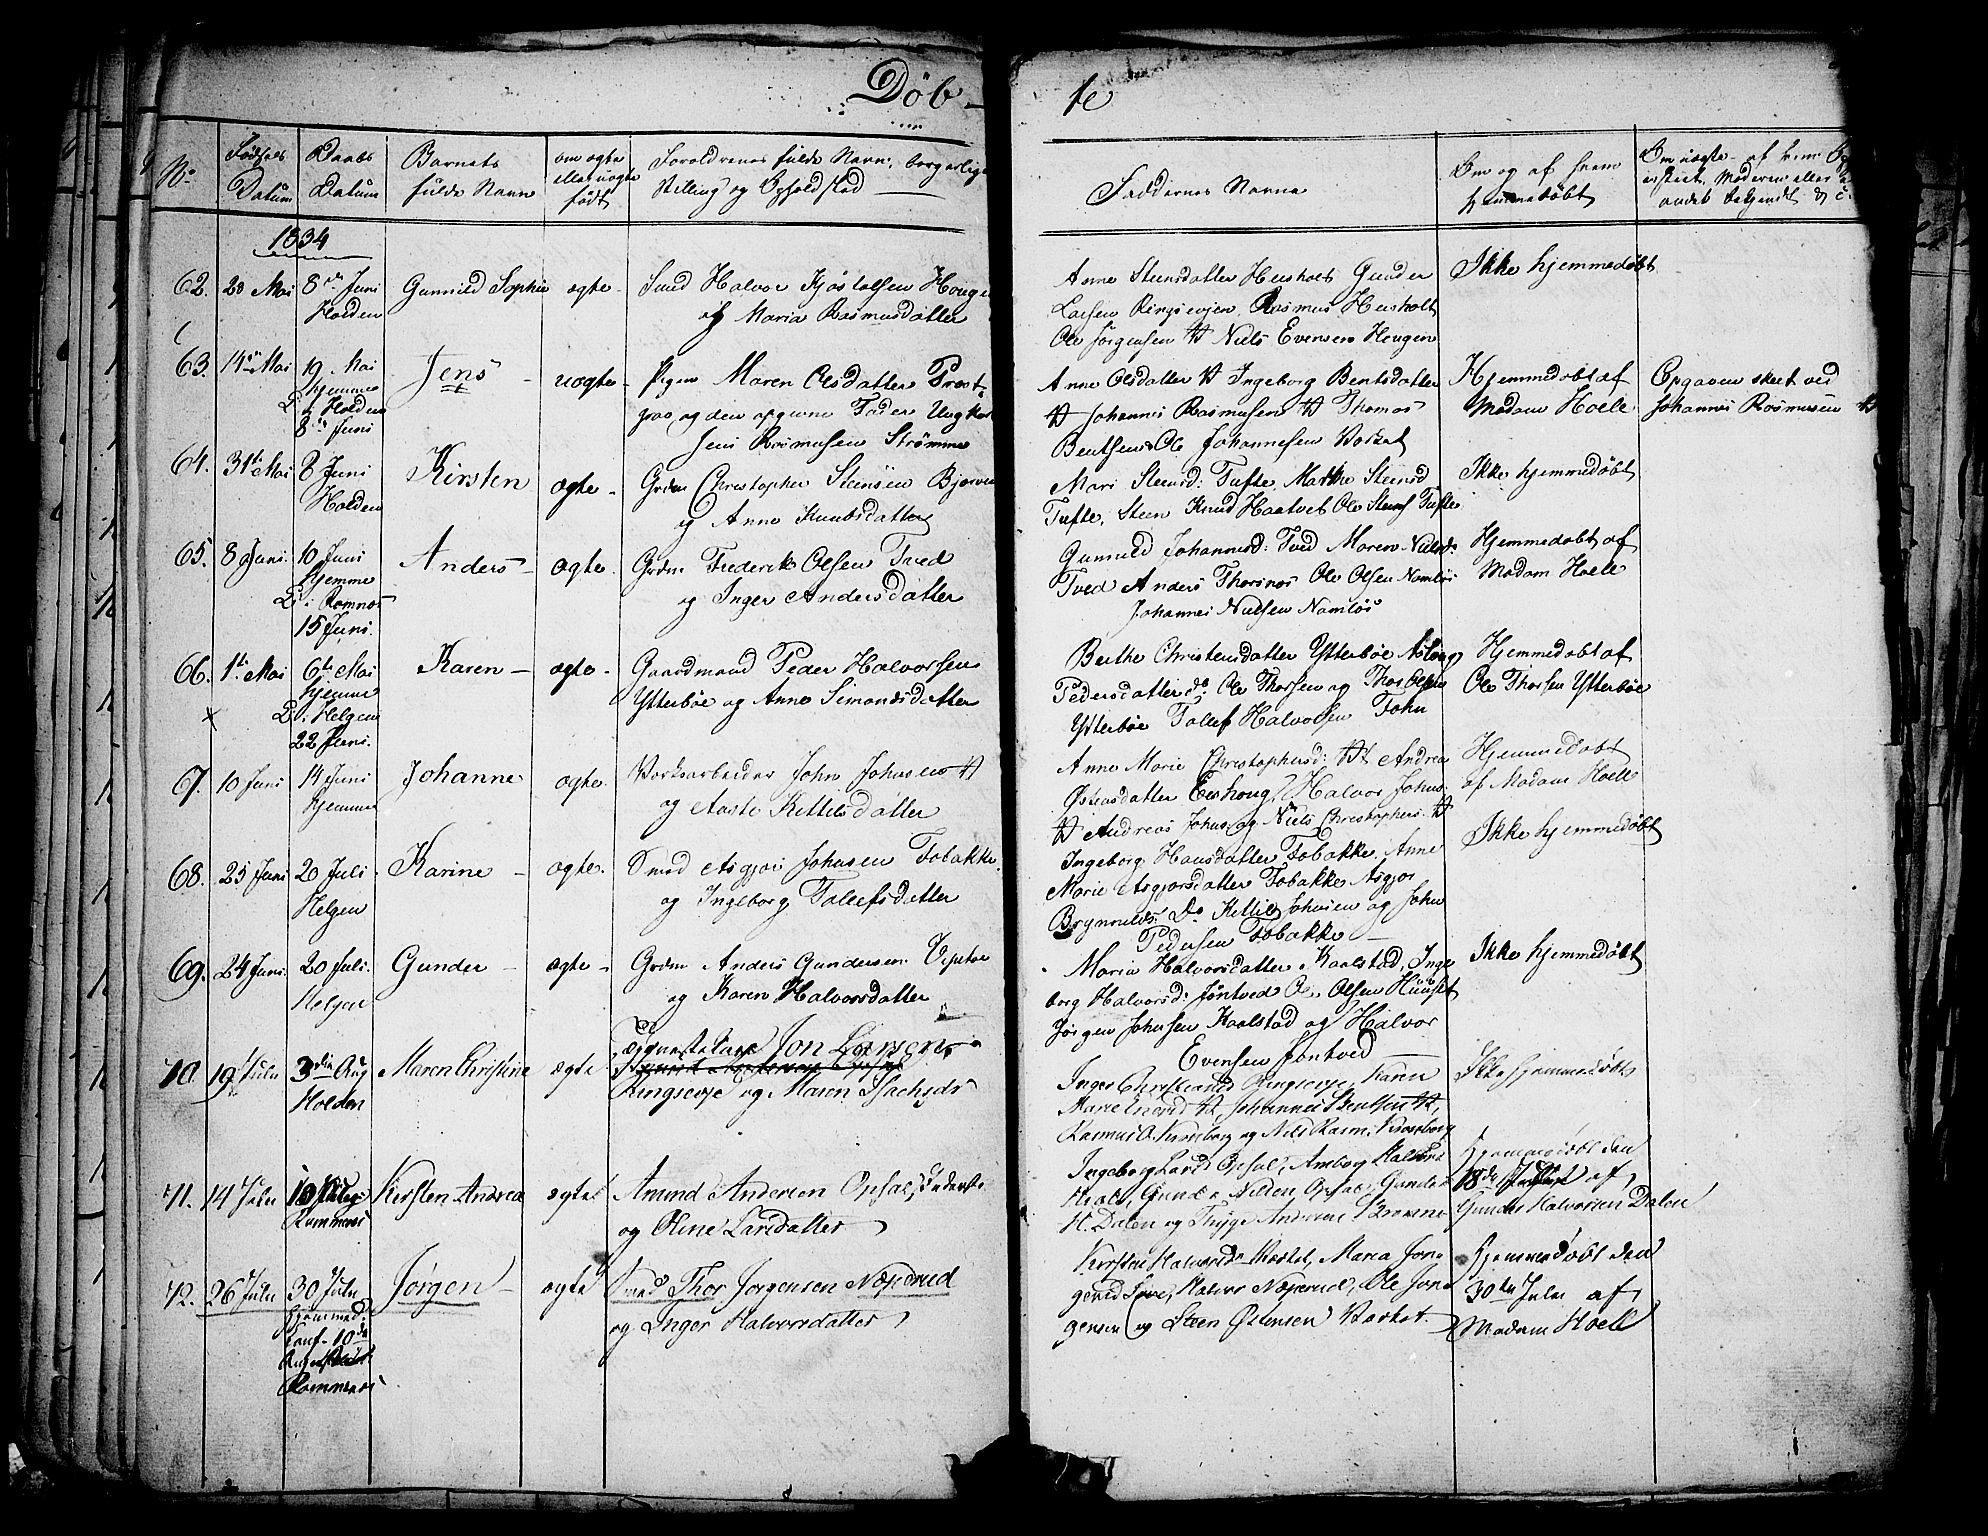 Døb-
te
No
Fødsels
Datum
Daabs
Datum
Barnets
fulde Navn
om ægte
eller uægte
født
Forældrenes fulde Navn, borgerlige
Stilling og Opholdsted
Faddernes Navne
Om og af hvem
hjemmedøbt
Om uægte - af hvem Op
er skeet, Moderen eller
andet bekjendt &c.
1834
62. 28 Mai 8de Juni Gunnild Sophie ægte
Holden
Halvor Kjøstolsen Hougen
og Maria Rasmusdatter
Anne Steensdatter Hersholt Gunder
Larsen Ringsevjen, Rasmus Hersholt
Ole Jørgensen V Niels Evensen Hougen
Ikke hjemmedøbt
63. 14de Mai 19 Mai Jens - uægte -
hjemme
i Holden
8de Juni
Pigen Maren Olsdatter Præst
og den opgivne Fader Ungkarl
Jens Rasmusen Strømme
Anne Olsdatter V Ingeborg Bentsdatter
V Johannes Rasmusen V Thomas
Bentsen Ole Johannesen Værket
Hjemmedøbt af
Madam Hoell
Opgaven skeet ved
Johannes Rasmusen V
64. 31te Mai 8 Juni Kirsten ægte -
Holden
Grdm Christopher Steensen Bjerven
og Anne Knudsdatter
Mari Steensd: Tufte, Marthe Steensd
Tufte, Steen Knud Haatvet Ole Steens Tufte
Ikke hjemmedøbt
65. 8 Juni 10 Juni Anders - ægte.
hjemme
i Romnæs
15 Juni.
Grdm Frederik Olsen Tved
og Inger Andersdatter
Gunnild Johannesd: Tved Maren Nielsd:
Tved Anders Thorsnæs Ole Olsen Namløs
Johannes Nielsen Namløs
Hjemmedøbt af
Madam Hoell
66. 1te Mai 6te Mai Karen - ægte -
hjemme
i Helgen
22 Juni.
Gaardmand Peder Halvorsen
Ytterbøe og Anne Simonsdatter
Berthe Christensdatter Ytterbøe Aslaug
Pedersdatter do. Ole Thorsen og Thor Olsen
Ytterbøe Tollef Halvorsen John
Hjemmedøbt af
Ole Thorsen Ytterbøe
67. 10 Juni 14 Juni Johanne ægte.
hjemme
Værksarbeider John Johnsen V
og Aaste Kittilsdatter
Anne Marie Christophersd: V Andrea
Østensdatter Eeshoug, Halvor Johns:
V Andreas Johns: og Niels Christophers: V
Hjemmedøbt
af Madam Hoell
68. 25 Juni 20 Juli Karine - ægte.
Helgen
Smed Asgjør Johnsen Tobakke
og Ingeborg Tollefsdatter
Ingeborg Hansdatter Tobakke, Anne
Marie Asgjørsdatter Tobakke Asgjør
Brynnilds: Do Kittil Johnsen og John
Pedersen Tobakke -
Ikke hjemmedøbt
69. 24 Juni. 20 Juli. Gunder - ægte -
Helgen
Grdm Anders Gundersen Vipto
og Karen Halvorsdatter
Maria Halvorsdatter Kaalstad, Inge
borg Halvorsd: Jøntved Ole Olsen Huuset
Jørgen Johnsen Kaalstad og Halvor
Evensen Jøntved
Ikke hjemmedøbt
70. 19 Julii 3die Aug Maren Christine ægte
Holden
Jon Larsen
Ringsevje og Maren Isachsdr
Inger Christiansd Ringsevje, Karen
Marie V, Johannes Bentsen V,
Rasmus O. Kraaberg og Nils Rasm. Kraaberg
Ikke hjemmedøbt
71. 14 Julii 10 Aug Kirsten Andrea ægte
Romnæs
Amund Andersen Opsal, Inderste
og Oline Larsdatter
Ingeborg Larsd Opsal, Amborg Halvorsd
Gunder Nilsen Opsal, Gunder
H. Dalen og Thyge Andersen
Hjemmedøbt den
18de af
Gunder Halvorsen Dalen
72. 26 Julii 30 Julii Jørgen - ægte
hjemmed.
10de
Aug
Romnæs
Smed Thor Jørgensen Næperud
og Inger Halvorsdatter
Kirsten Halvorsd Værket, Maria Jør-
gensd Halvor Næperud, Ole Jør-
gensen og Steen Østensen Værket.
Hjemmedøbt den
30te Julii af
Madam Hoell